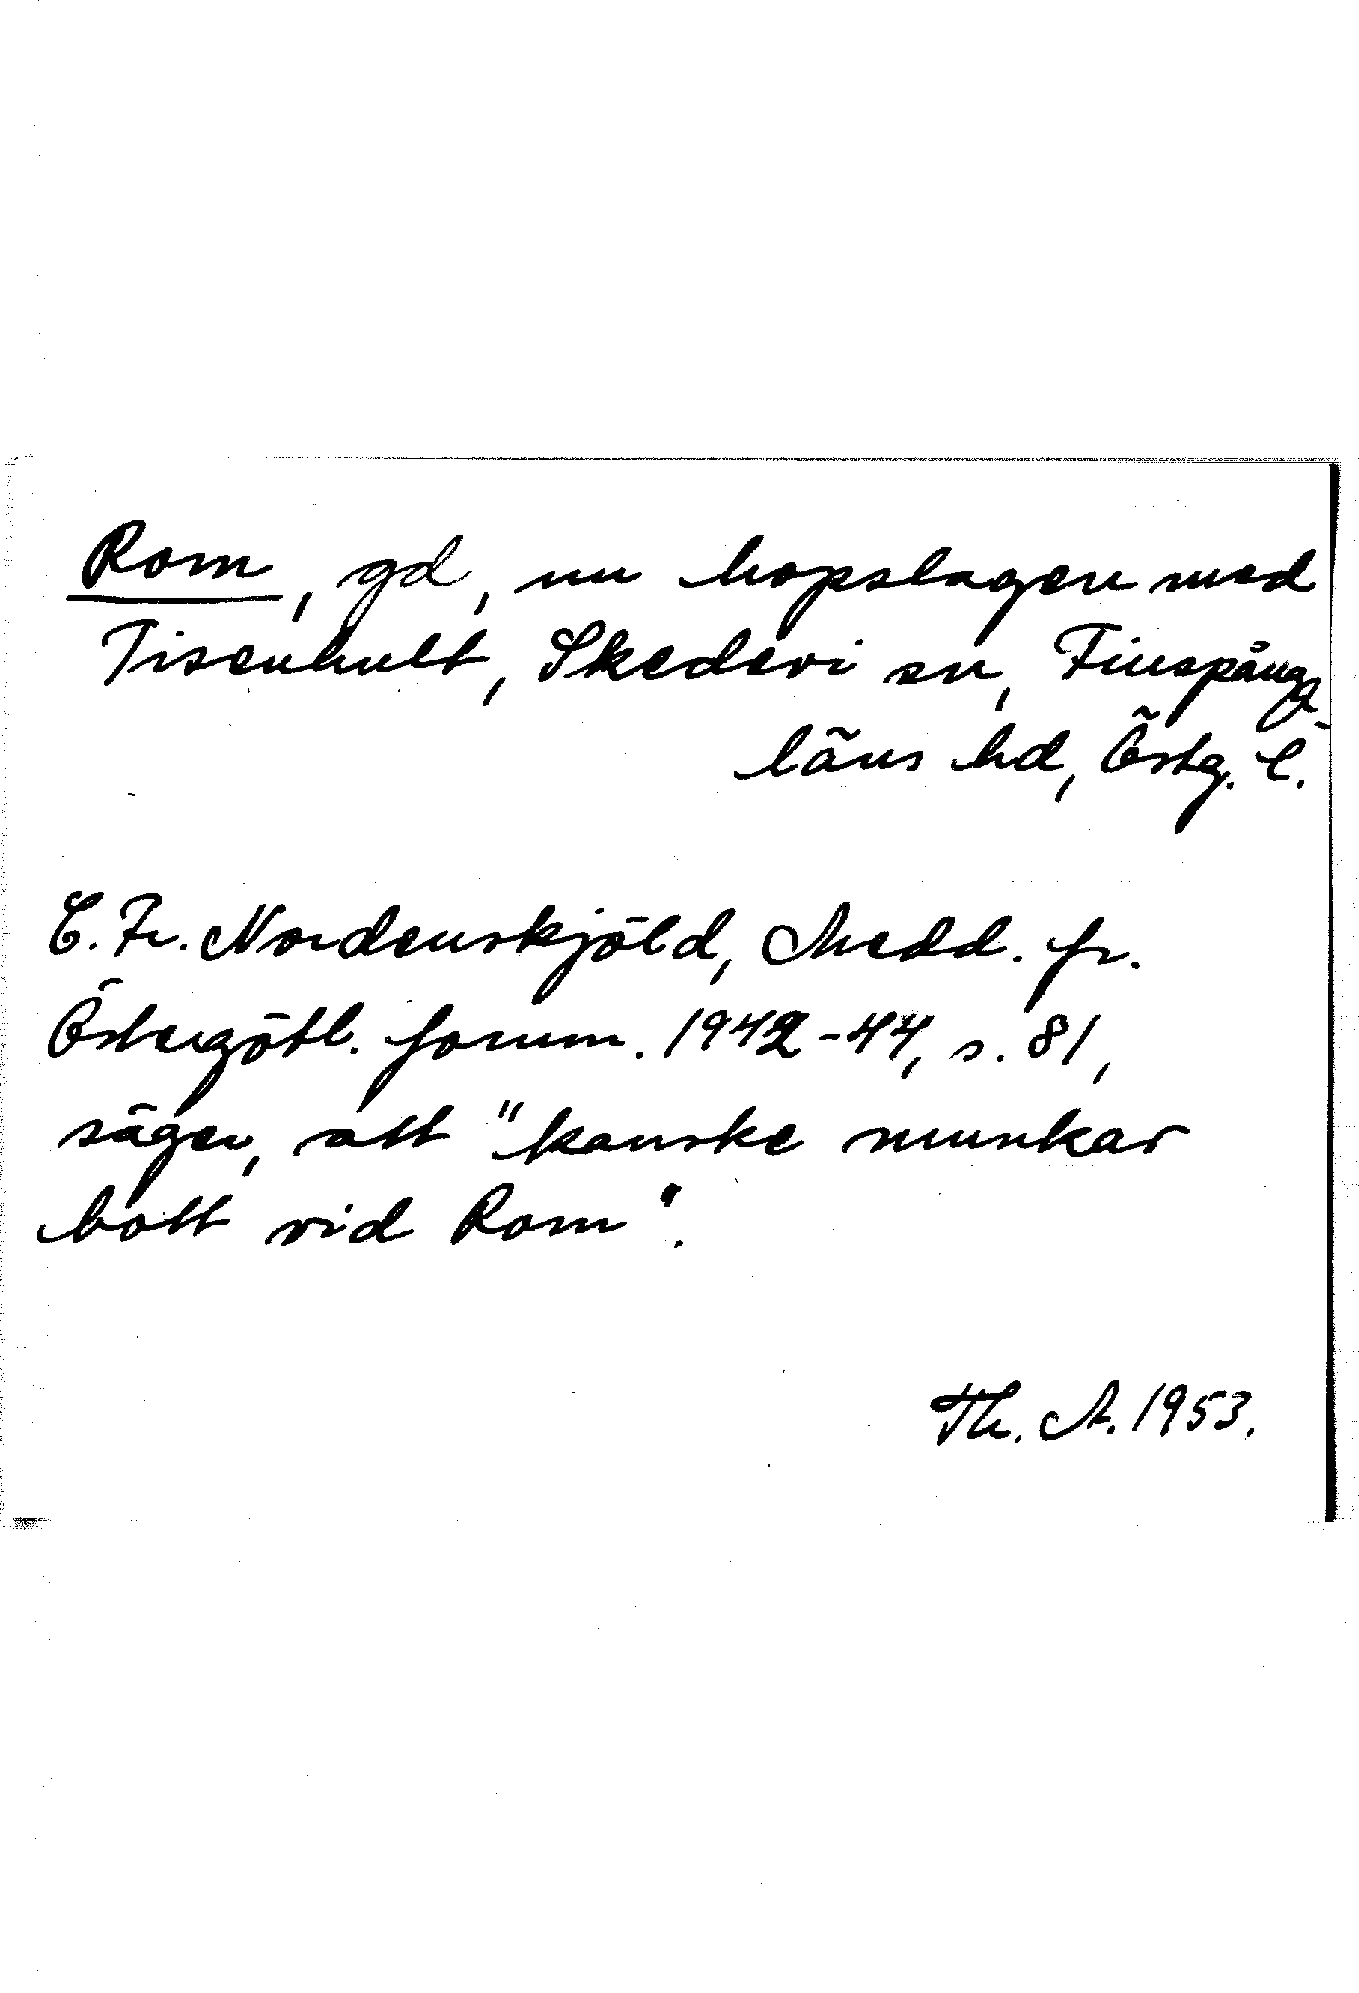 Rom, gd, nu hopslagen med
Tisenhult, Skedevi sn, Finspånga-
läns hd, Östg. l.
C. Fr. Nordenskjöld, Medd. fr.
Östergötl. fornm. 1942-44, s. 81,
säger, att "kanske munkar
bott vid Rom".
Th. A. 1953.